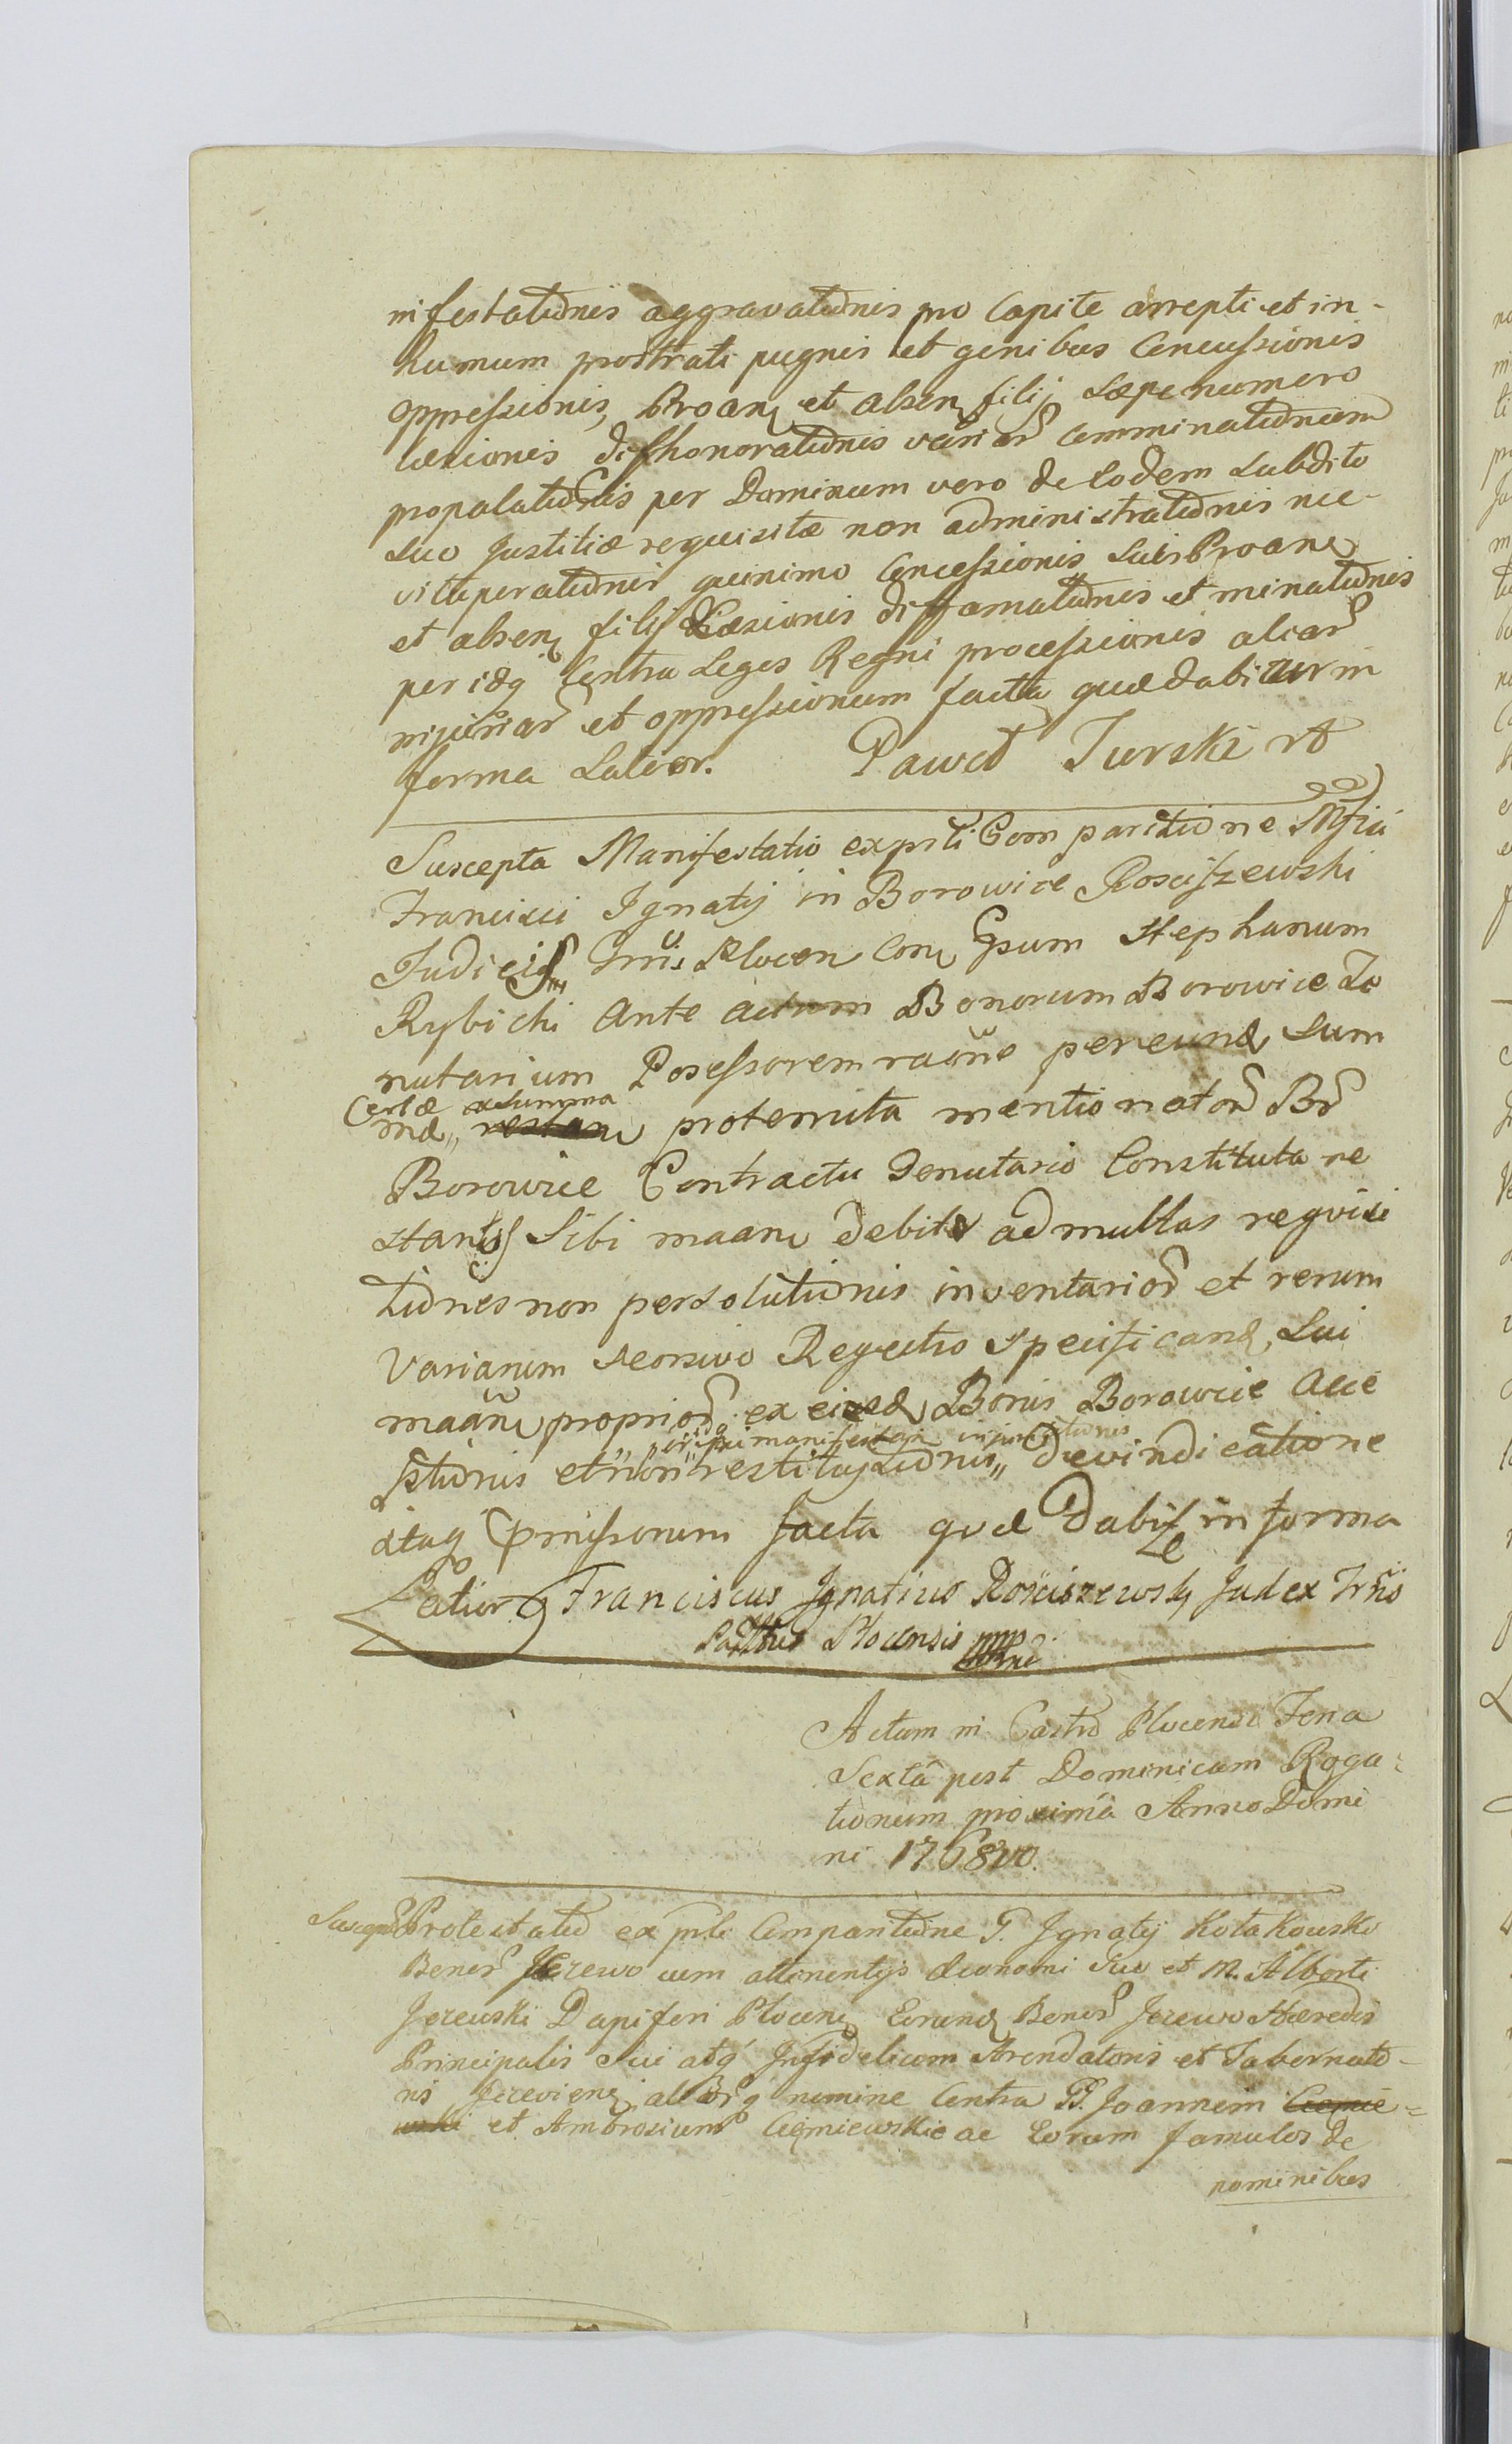 nifestationis aggravationis pro Capite arrepti et in-
humum prostrati pugnis et genibus Concussionis
oppressionis, Proan et absen filij saepenumero
laesionis dishonorationis variar comminationum
propalationis per Dominum vero de Eodem Subdito
suo Justitiae requisitae non administrationis nec
vituperationis quinimo Concessionis Suis Proane
et absen filij Laesionis diffamationis et minationis
per idq Contra Leges Regni processionis aliar
injuriar et oppressionum facta quae dabitur in
forma Latior. Paweł Turski
Suscepta Manifestatio ex prsti Comparitione Mfici
Francisci Ignatij in Borowice Rosciszewski
Judicis Trris Plocen Con Gsum Stephanum
Rybicki Ante actum Bonorum Borowice Te
nutarium Posessorem raone pereund Sum
Certae ex summa
mae proternuta mentionator Br
Borowice Contractu Tenutario Constituta re
stants Sibi maane debite ad multas requisi
tiones non persolutionis inventarior et rerum
Variarum seorsivo Regestro specificand, Sui
maane proprior ex eisd Bonis Borowice Acce
per id manifestan injunctionis
ptionis et non restitutionis Devindicatione
itaq Pmissorum facta quae Dabitr in forma
Latiori Franciscus Ignatius Rosciszewsky Judex Trris
Plocensis mp
Actum in Castro Plocensi Feria
Sexta post Dominicam Roga-
tionum proxima Anno Domi
ni 1768vo.
Suscepta Protestatio ex psti Comparitione G. Ignatij Kołakowski
Bonor Jezewo cum attinentijs Oeconomi Suo et M. Alberti
Jezewski Dapiferi Plocen Eorund Bonor Jezewo Haeredis
Principalis Sui atq Infidelium Arendatoris et Tabernato-
ris Jezevien alior q nomine Contra GG. Joannem Ciemie-
wski et Ambrosium Ciemiewskie ac Eorum famulos de
nominibus